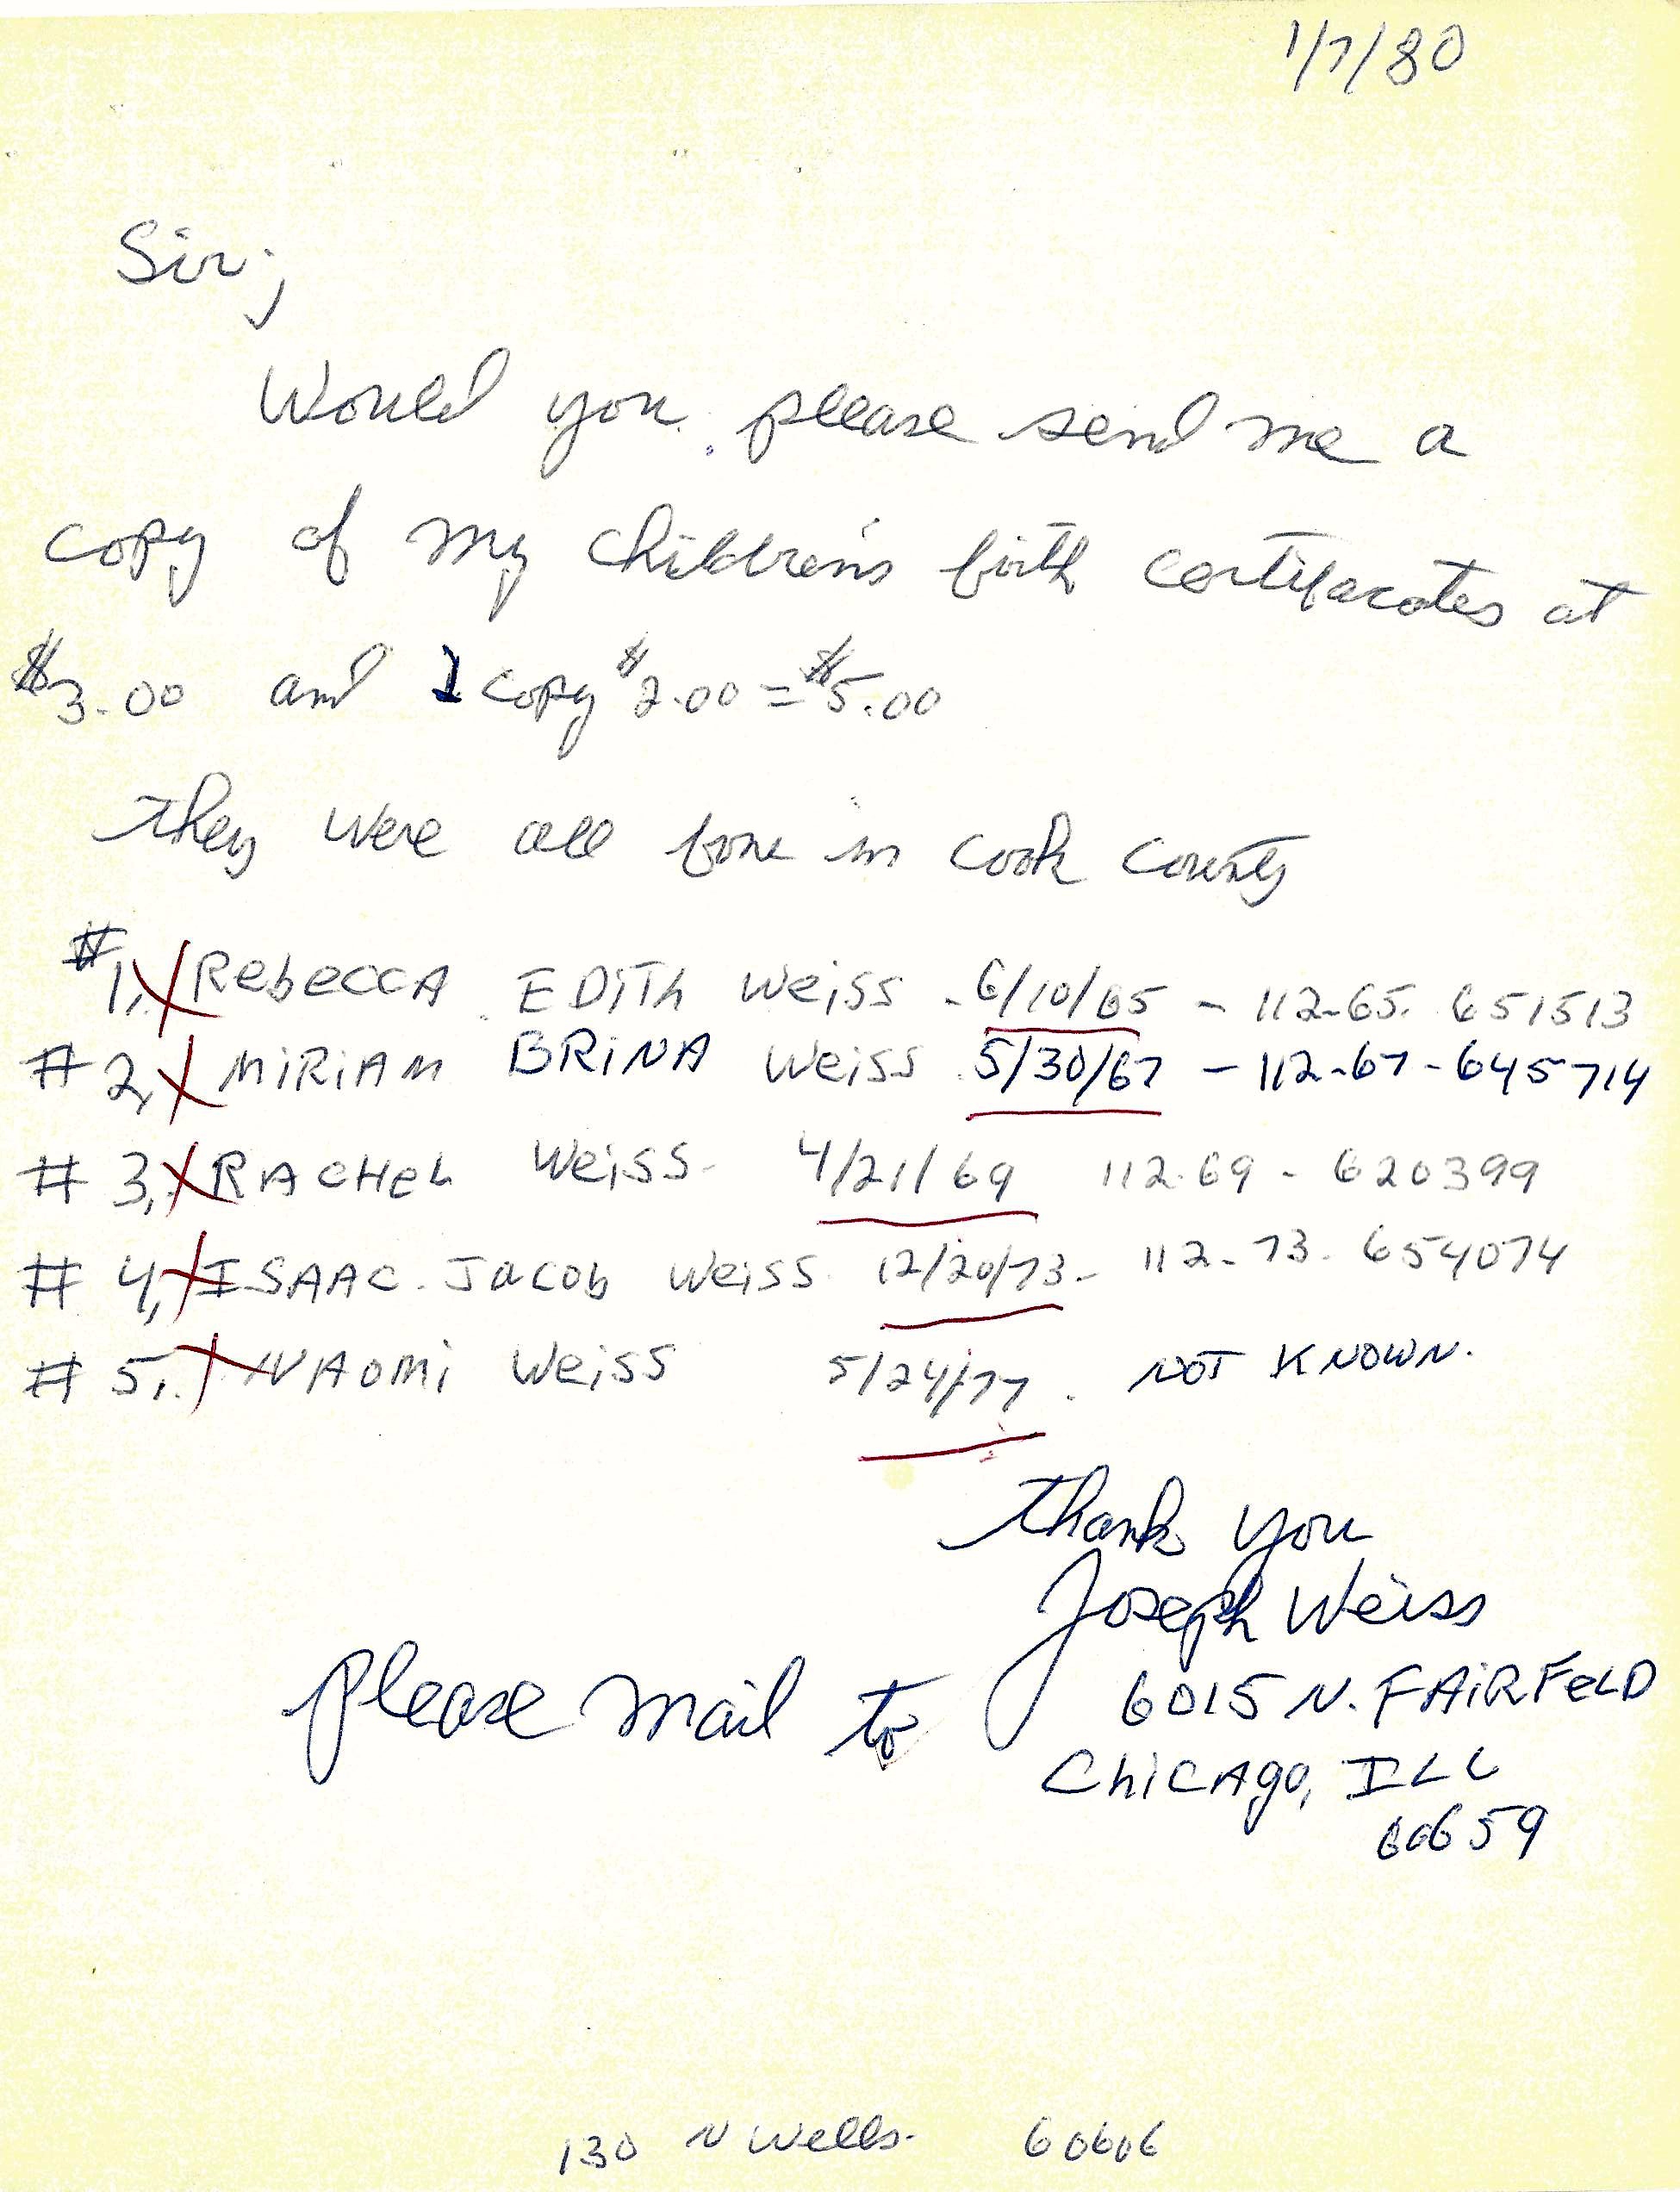 1/7/80
Sir;
Would you please send me a
copy of my children's birth certifacates at
$3.00 and 1 copy $2.00 = $5.00
they were all born in Cook County
#1, X Rebecca EDITh Weiss - 6/10/65 - 112-65. 651513
# 2, X MiRiAM BRiNA Weiss 5/30/67 - 112-67-645714
# 3, X RACHeL Weiss - 4/21/69 112-69 - 620399
# 4, X ISAAC Jacob Weiss 12/20/73 - 112-73-654074
# 5, X NAOMi Weiss 5/24/77. NOT KNOWN.
thank you
Joseph Weiss
please mail to 6015 N. FAiRFeLD
ChiCAgo, ILL
60659
130 N Wells. 60606